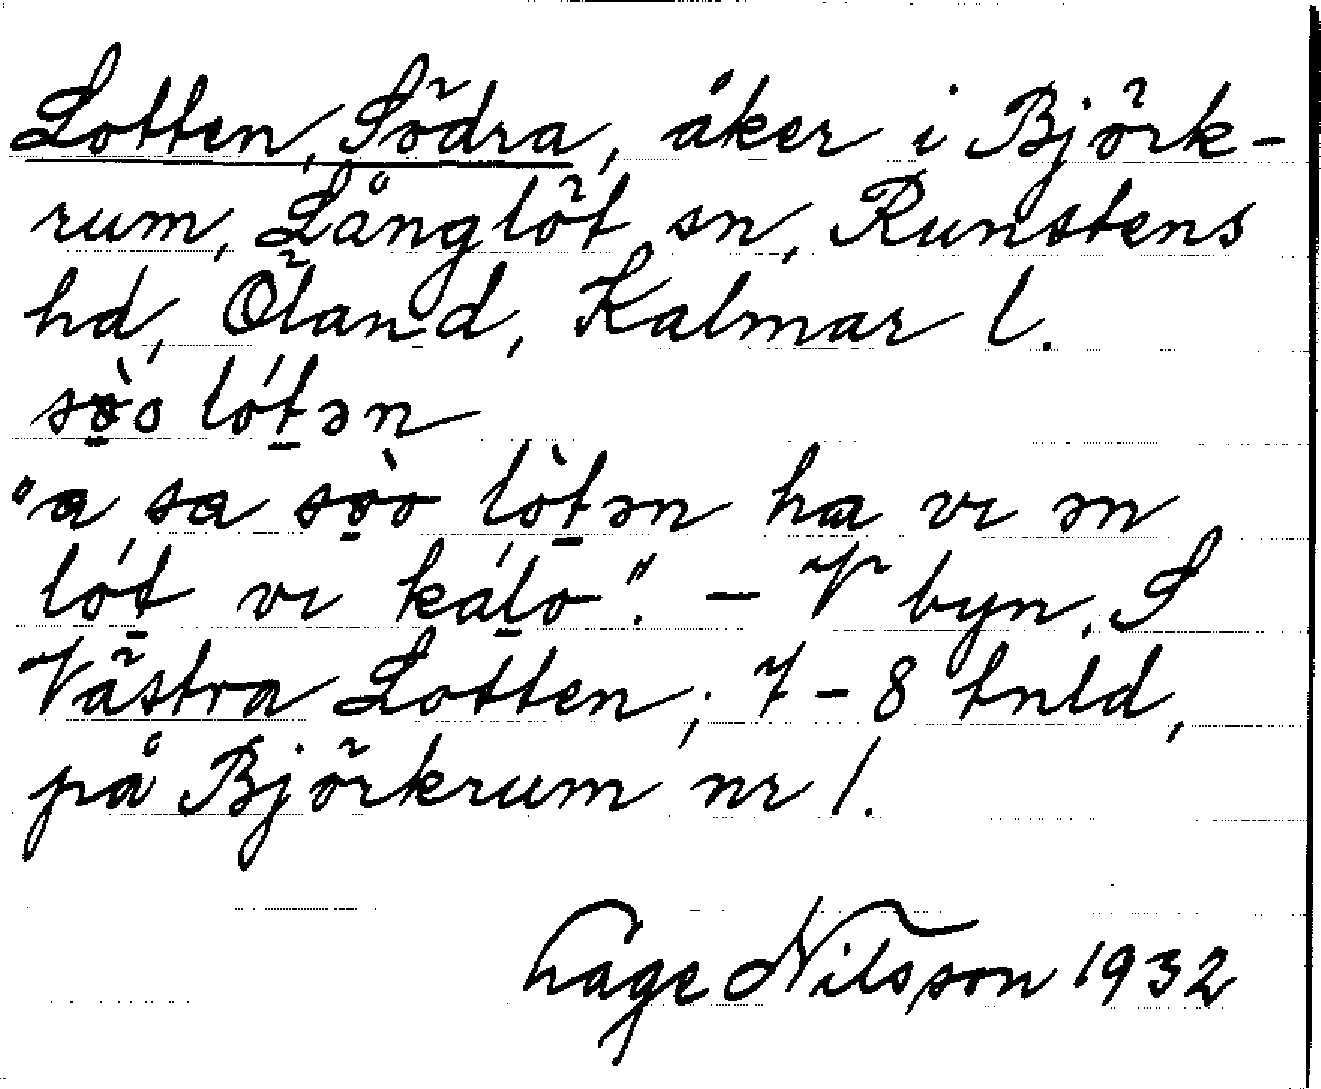 Lotten, Södra, åker i Björk-
rum, Långlöt sn, Runstens
hd, Öland, Kalmar l.
sö̀o lót̲ən
"a sa sö̀o lòt̲ən ha vı ən
lót̲ vı kál̲o". – V byn, S
Västra Lotten; 7–8 tnld,
på Björkrum nr 1.
Nilsson 1932